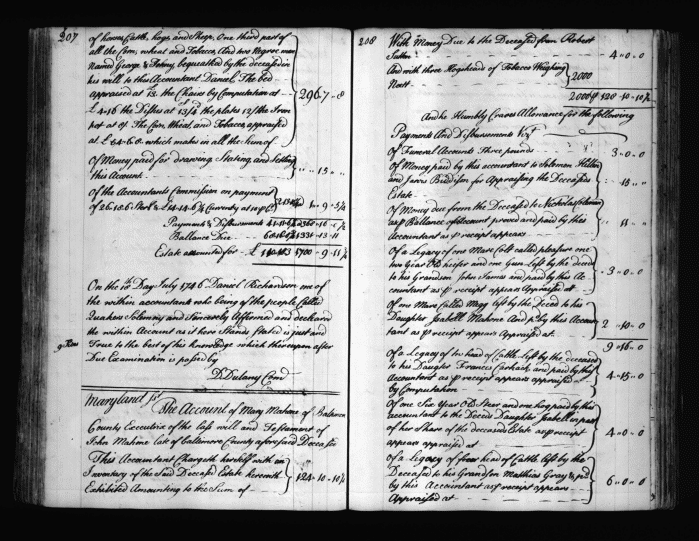 207
of horses, Cattle, hogs, and Sheep, One third part of
all the Corn, wheat and Tobacco, And two Negroe men
Named George & Johnny bequeathed by the deceased in
his will to this Accountant Daniel, The bed
appraised at the Chairs by Computation at
£4-16 the Dishes at 13/4 the plates 12/ the Iron
pot at 9/ The Corn, Wheat, and Tobacco, appraised
at £54-6-0 which makes in all the Sum of
296 " 7 - 8
Of Money paid for drawing Stating and Settling
this Account
" " 15 " "
Of the Accountants Commission on payment
Currency at 10 p Ct
Payments & Disbursements
Ballance Due
Estate accounted for - £
On the 10 Day July 1746 Daniel Richardson one of
the within accountant who being of the people Called
Quakers Solemnly and Sincerely Affirmed and declared
the within Account as it here Stands Stated is just and
True to the best of his knowledge which thereupon after
Due Examination is passed by
D Dulany Com
Maryland ss
The Account of Mary Mahone of Baltimore
County Executrix of the last will and Testament of
John Mahone Late of Baltimore County aforesaid Deceased
This Accountant Chargeth herself with an
Inventory of the Said Deceased Estate herewith
Exhibited Amounting to the Sum of
124 - 10 - 10½
208
With Money Due to the Deceased from Robert
Sutton
4 " 0 - 0
And with three Hogsheads of Tobacco Weighing
Nett
2000
2000 128 - 10 - 10½
And he Humbly Craves Allowance for the following
Payments And Disbursements Vizt
Of Funeral Accounts Three pounds
3 - 0 - 0
Of Money paid by this accountant to Solomon Hillen
and James Biddison for Appraising the Deceaseds
Estate
" 15 " "
Of Money due from the Deceased to Nicholas
as p Ballance of Account proved and paid by this
Accountant as p receipt appears
" 11 " "
Of a Legacy of one Mare Colt called pleasure one
two Year Old heifer and one Gun Left by the deced
to his Grandson John James and paid by this Ac
countant as p receipt appears Appraised at
3 - 0 - 0
Of one Mare Called Megg left by the Deced to his
Daughter Isabell Mahone And pd by this Accoun
tant as p receipt appears Appraised at
2 - 10 - 0
9 - 16 - 0
Of a Legacy of head of Cattle Left by the deceased
to his Daughter Frances and paid by this
Accountant as p receipt appears appraised
by Computation
4 - 15 - 0
Of one Six Year Old Steer and one hog paid by this
accountant to the Deced Daughter Isabell in part
of her Share of the deceaseds Estate as p receipt
appears appraised at
4 " 0 - 0
Of a Legacy of four head of Cattle left by the
Deceased to his Grandson Mathias Gray & pd
by this Accountant as p receipt appears
Appraised at
6 " 0 - 0